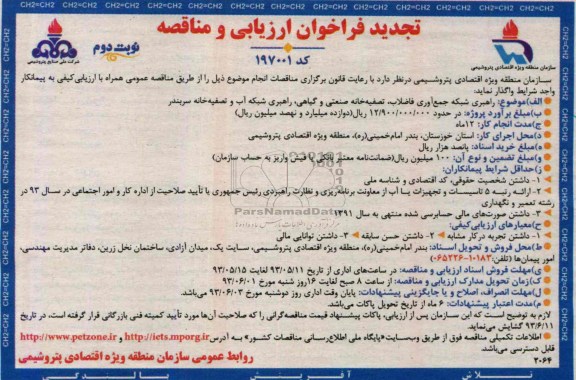 CH2=CH2 CH2=CH2 CH2=CH2 CH2=CH2 CH2=CH2 CH2=CH2 CH2=CH2
تجدید فراخوان ارزیابی و مناقصه
کد ۱۹۷۰۰۱
نوبت دوم
سازمان منطقه ویژه اقتصادی پتروشیمی
شرکت ملی صنایع پتروشیمی
سازمان منطقه ویژه اقتصادی پتروشیمی درنظر دارد با رعایت قانون برگزاری مناقصات انجام موضوع ذیل را از طریق مناقصه عمومی همراه با ارزیابی‌کیفی به پیمانکار
واجد شرایط واگذار نماید:
الف)موضوع: راهبری شبکه جمع‌آوری فاضلاب، تصفیه‌خانه صنعتی و گیاهی، راهبری شبکه آب و تصفیه‌خانه سربندر
ب)مبلغ برآورد پروژه: در حدود ۱۲/۹۰۰/۰۰۰/۰۰۰ ریال(دوازده میلیارد و نهصد میلیون ریال)
ج)مدت انجام کار: ۱۲ماه
د)محل اجرای کار: استان خوزستان، بندر امام‌خمینی(ره)، منطقه ویژه اقتصادی پتروشیمی
ه)مبلغ خرید اسناد: پانصد هزار ریال
و)مبلغ تضمین و نوع آن: ۱۰۰ میلیون ریال(ضمانت‌نامه معتبر بانکی یا فیش واریز به حساب سازمان)
ز)حداقل شرایط پیمانکاران:
۱- داشتن شخصیت حقوقی، کد اقتصادی و شناسه ملی
۲- ارائه رتبه ۵ تاسیسات و تجهیزات یا آب از معاونت برنامه‌ریزی و نظارت راهبردی رئیس جمهوری یا تأیید صلاحیت از اداره کار و امور اجتماعی در سال ۹۳ در
رشته تعمیر و نگهداری
۳- داشتن صورت‌های مالی حسابرسی شده منتهی به سال ۱۳۹۱
ح)معیارهای ارزیابی‌کیفی:
۱- داشتن تجربه در کار مشابه ۲- داشتن حسن سابقه ۳- داشتن توانایی مالی
ط)محل فروش و تحویل اسناد: بندر امام‌خمینی(ره)، منطقه ویژه اقتصادی پتروشیمی، سایت یک، میدان آزادی، ساختمان نخل زرین، دفاتر مدیریت مهندسی،
امور پیمان‌ها (تلفن:
ی)مهلت فروش اسناد ارزیابی و مناقصه: در ساعت‌های اداری از تاریخ ۹۳/۰۵/۱۱ لغایت ۹۳/۰۵/۱۵
ک)زمان تحویل مدارک ارزیابی و مناقصه: از ساعت ۸ صبح لغایت ۱۶ روز شنبه مورخ ۹۳/۰۶/۰۱
ل)مهلت انصراف، اصلاح و یا جایگزینی پیشنهادات: پایان وقت اداری روز دوشنبه مورخ ۹۳/۰۶/۰۳ می‌باشد.
م)مدت اعتبار پیشنهادات: ۶ ماه از تاریخ تحویل پاکات می‌باشد.
لازم به توضیح است که این سازمان پس از ارزیابی، پاکات پیشنهاد قیمت مناقصه‌گرانی را که صلاحیت آن‌ها مورد تأیید کمیته فنی بازرگانی قرار گرفته است، در تاریخ
۹۳/۶/۱۱ گشایش می‌نماید.
اطلاعات تکمیلی مناقصه فوق از طریق وب‌سایت«پایگاه ملی اطلاع‌رسانی مناقصات کشور» به آدرس http://iets.mporg.ir و http://www.petzone.ir
قابل دسترسی می‌باشد.
روابط عمومی سازمان منطقه ویژه اقتصادی پتروشیمی
۲۰۶۴
تلاش آفرینش بالندگی
ParsNamadData